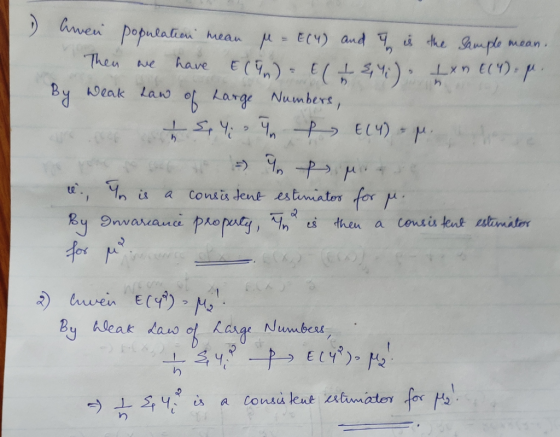 1) Given population mean μ = E(Y) and Ȳn is the sample mean.
Then we have E(Ȳn) = E(1/n Σ Yi) = 1/n × n E(Y) = μ.
By Weak Law of Large Numbers,
1/n Σ Yi = Ȳn —P→ E(Y) = μ.
⇒ Ȳn —P→ μ.
ie., Ȳn is a consistent estimator for μ.
By Invariance property, Ȳn² is then a consistent estimator
for μ².
2) Given E(Y²) = μ2'.
By Weak Law of Large Numbers,
1/n Σ Yi² —P→ E(Y²) = μ2'.
⇒ 1/n Σ Yi² is a consistent estimator for μ2'.